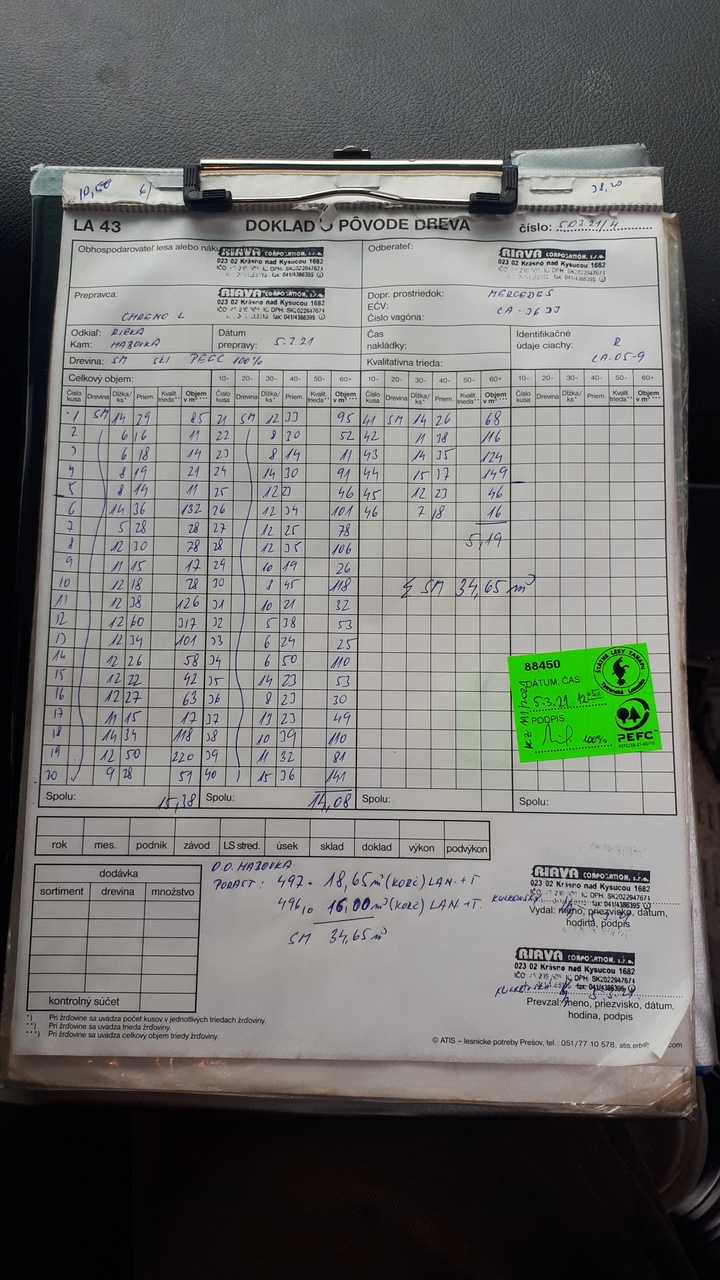 10,50 6) 38,20
LA 43 DOKLAD O PÔVODE DREVA číslo: 50321/4
Obhospodarovateľ lesa alebo
RIAVA CORPORATION, s.r.o.
023 02 Krásno nad Kysucou 1682
Odberateľ:
RIAVA CORPORATION, s.r.o.
023 02 Krásno nad Kysucou 1682
Prepravca:
RIAVA CORPORATION, s.r.o.
023 02 Krásno nad Kysucou 1682
Dopr. prostriedok: MERCEDES
EČV:
Číslo vagóna:
Odkiaľ: RIEKA
Kam: HAŽOVKA
Dátum
prepravy: 5.3.21
Čas
nakládky:
Identifikačné
údaje ciachy: R
LA-05-9
Drevina: SM SKI PEFC 100%
Kvalitatívna trieda:
Celkový objem: 10- 20- 30- 40- 50- 60+ 10- 20- 30- 40- 50- 60+ 10- 20- 30- 40- 50- 60+
Číslo kusa Drevina Dĺžka/ks* Priem. Kvalit. trieda** Objem v m³*** Číslo kusa Drevina Dĺžka/ks* Priem. Kvalit. trieda** Objem v m³*** Číslo kusa Drevina Dĺžka/ks* Priem. Kvalit. trieda** Objem v m³*** Číslo kusa Drevina Dĺžka/ks* Priem. Kvalit. trieda** Objem v m³***
1 SM 14 29 85 21 SM 12 33 95 41 SM 14 26 68
2 6 16 11 22 8 30 52 42 11 38 116
3 6 18 14 23 8 14 11 43 14 35 124
4 8 19 21 24 14 30 91 44 15 37 149
5 8 14 11 25 12 23 46 45 12 23 46
6 14 36 132 26 12 34 101 46 7 18 16
7 5 28 28 27 12 25 78 5,19
8 12 30 78 28 12 35 106
9 11 15 17 29 10 19 26
10 12 18 28 30 8 45 118 Σ SM 34,65 m³
11 12 38 126 31 10 21 32
12 12 60 317 32 5 38 53
13 12 34 101 33 6 24 25
14 12 26 58 34 6 50 110
15 12 22 42 35 14 23 53
16 12 27 63 36 8 23 30
17 11 15 17 37 13 23 49
18 14 34 118 38 10 39 110
19 12 50 220 39 11 32 81
20 9 28 51 40 15 36 141
Spolu: 15,38 Spolu: 14,08 Spolu: Spolu:
88450
ŠTÁTNE LESY TANAPU
Tatranská Lomnica
DÁTUM, ČAS
5.3.21
PODPIS
100%
PEFC
rok mes. podnik závod LS stred. úsek sklad doklad výkon podvýkon
dodávka
sortiment drevina množstvo
kontrolný súčet
D.O. HAŽOVKA
PORAST: 497 - 18,65 m³ (KORČ) LAN.+T
496 10 16,00 m³ (KORČ) LAN.+T.
SM 34,65 m³
RIAVA CORPORATION, s.r.o.
023 02 Krásno nad Kysucou 1682
Vydal: meno, priezvisko, dátum,
hodina, podpis
RIAVA CORPORATION, s.r.o.
023 02 Krásno nad Kysucou 1682
Prevzal: meno, priezvisko, dátum,
hodina, podpis
*) Pri žrďovine sa uvádza počet kusov v jednotlivých triedach žrďoviny.
**) Pri žrďovine sa uvádza trieda žrďoviny.
***) Pri žrďovine sa uvádza celkový objem triedy žrďoviny.
© ATIS – lesnícke potreby Prešov, tel.: 051/77 10 578,